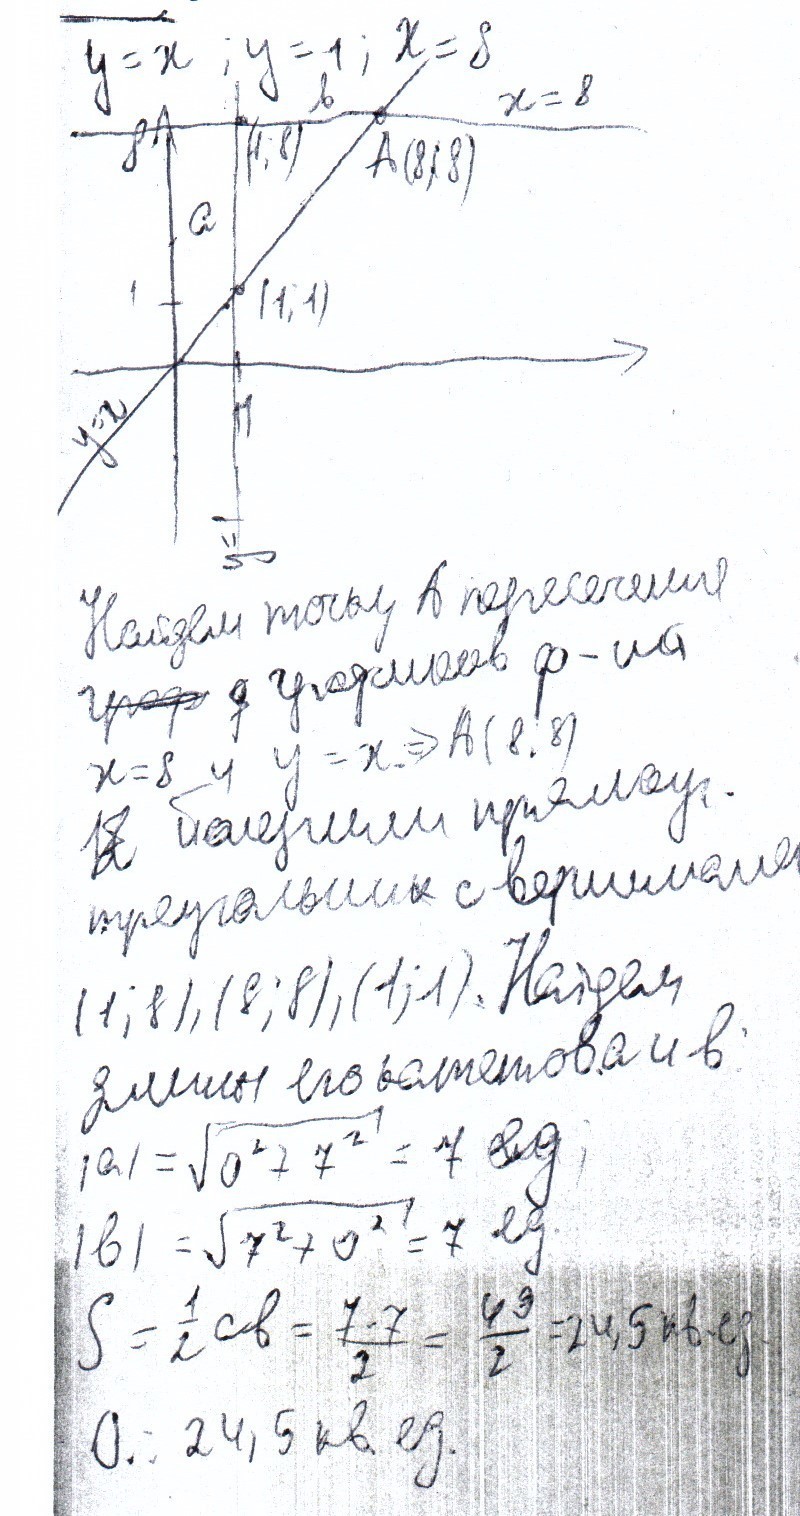 y=x ; y=1 ; x=8
в
x=8
8
(1;8)
A(8;8)
a
1
(1;1)
y=x
1
y=1
Найдем точку A пересечения
графиков ф-ий
x=8 и y=x ⇒ A(8;8)
Получили прямоуг.
треугольник с вершинами
(1;8),(8;8),(1;1). Найдем
длины его катетов a и в:
|a| = √0²+7² = 7 ед;
|в| = √7²+0² = 7 ед.
S = 1/2 aв = 7·7/2 = 49/2 = 24,5 кв.ед.
О.: 24,5 кв. ед.